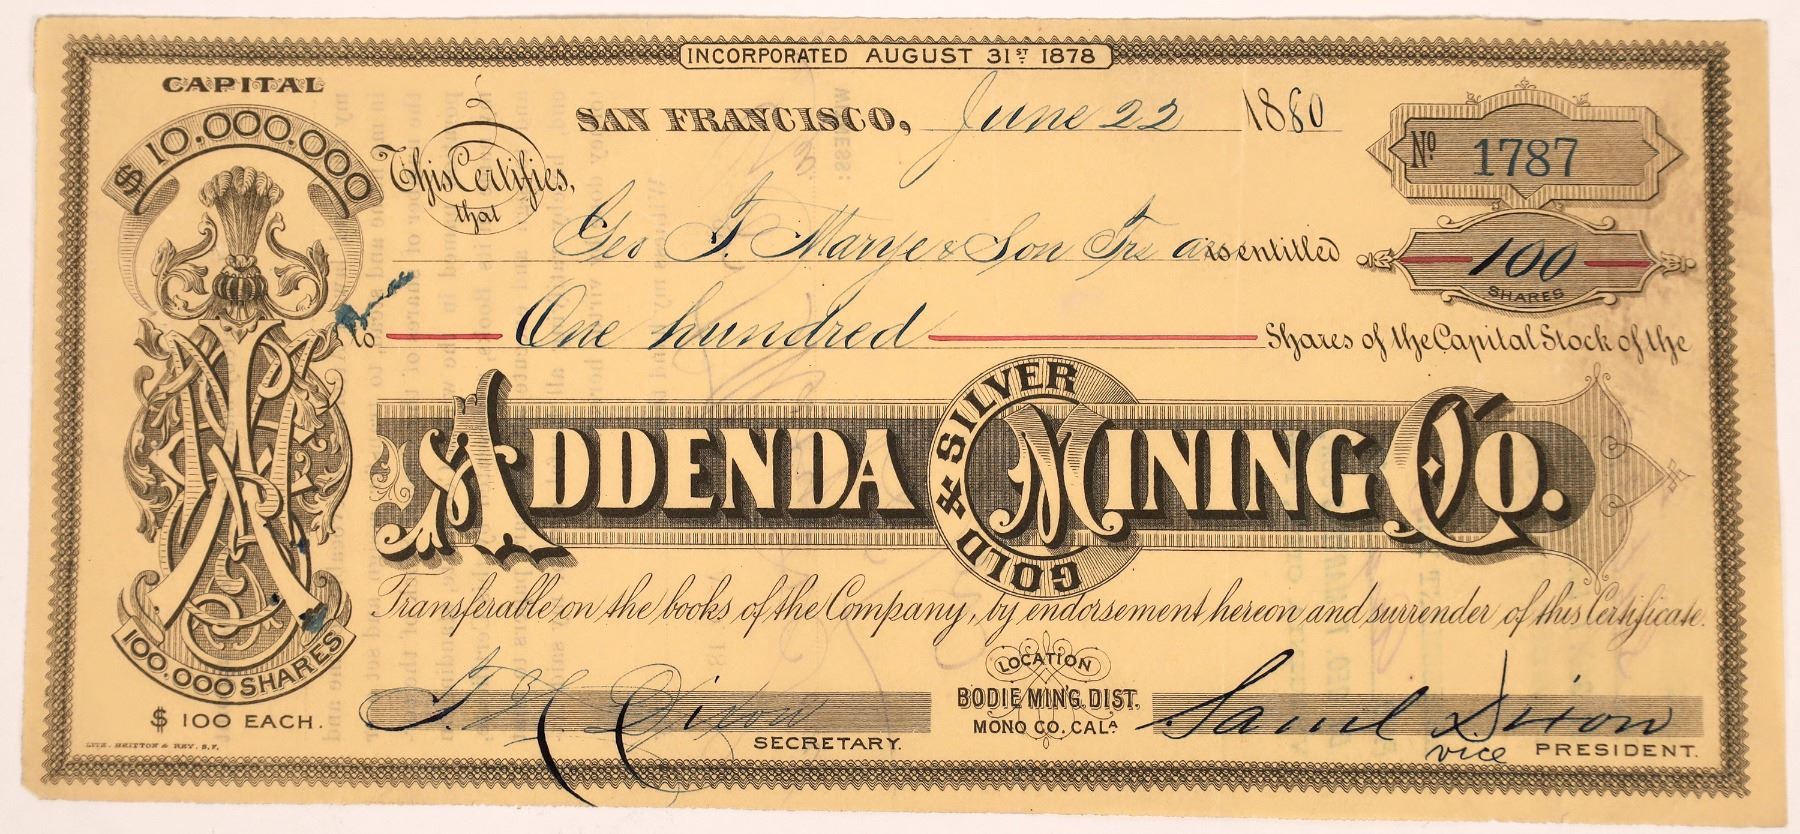 INCORPORATED AUGUST 31ST 1878
CAPITAL
$10,000,000
SAN FRANCISCO, June 22 1880
No 1787
This Certifies,
that
Geo T. Marye & Son Trs are is entitled
100
SHARES
to One hundred Shares of the Capital Stock of the
ADDENDA GOLD & SILVER MINING Co.
Transferable on the books of the Company, by endorsement hereon and surrender of this Certificate.
100.000 SHARES
$ 100 EACH.
LOCATION
BODIE MING. DIST.
MONO CO. CALA
Dixon
SECRETARY.
Saml Dixon
vice PRESIDENT.
LITH. BRITTON & REY. S.F.